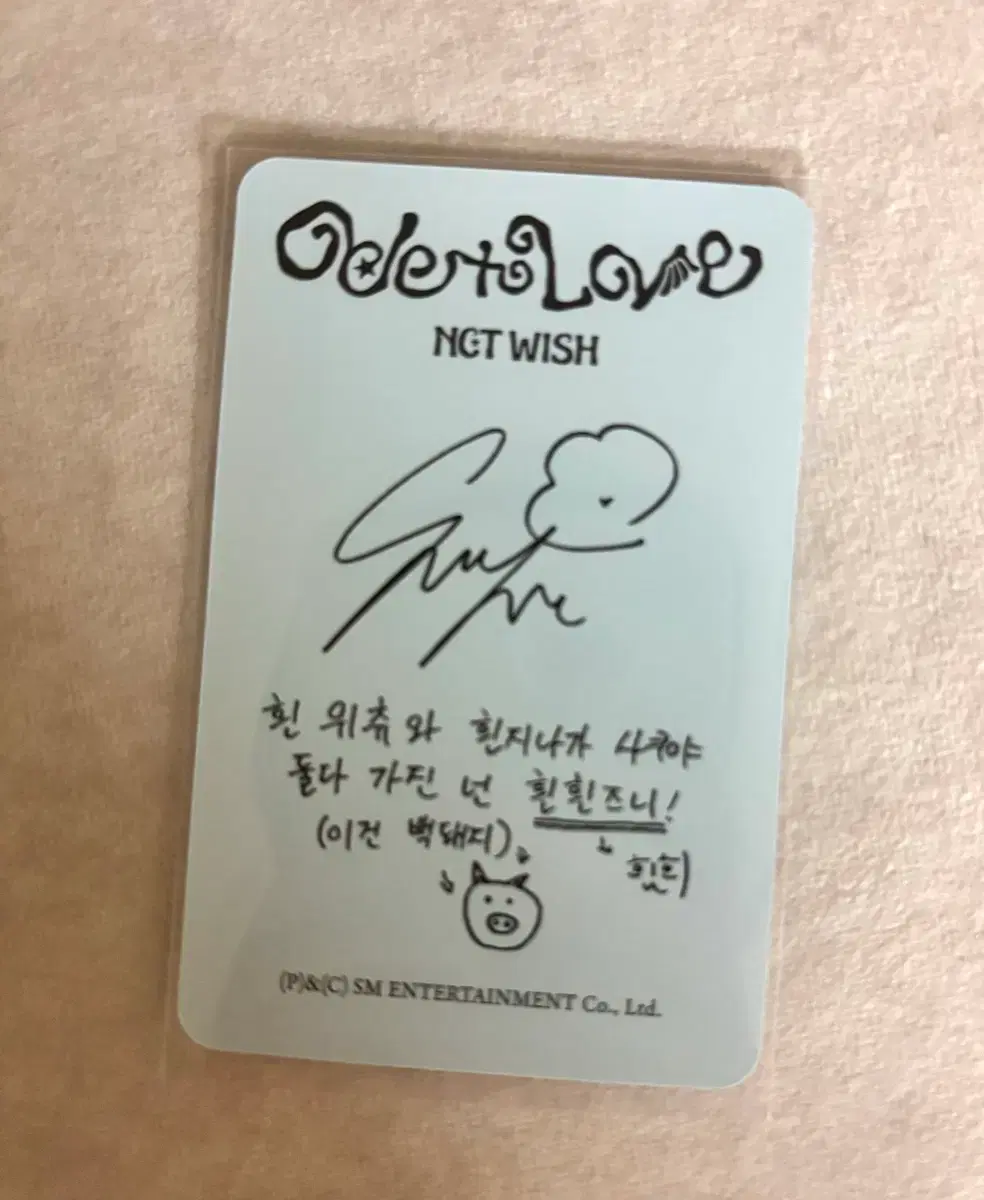 Ode to Love
NCT WISH
흰 위츄와 흰지나가 사귀야
둘다 가진 넌 흰흰즈니!
(이건 백돼지)
흰흰
(P)&(C) SM ENTERTAINMENT Co., Ltd.